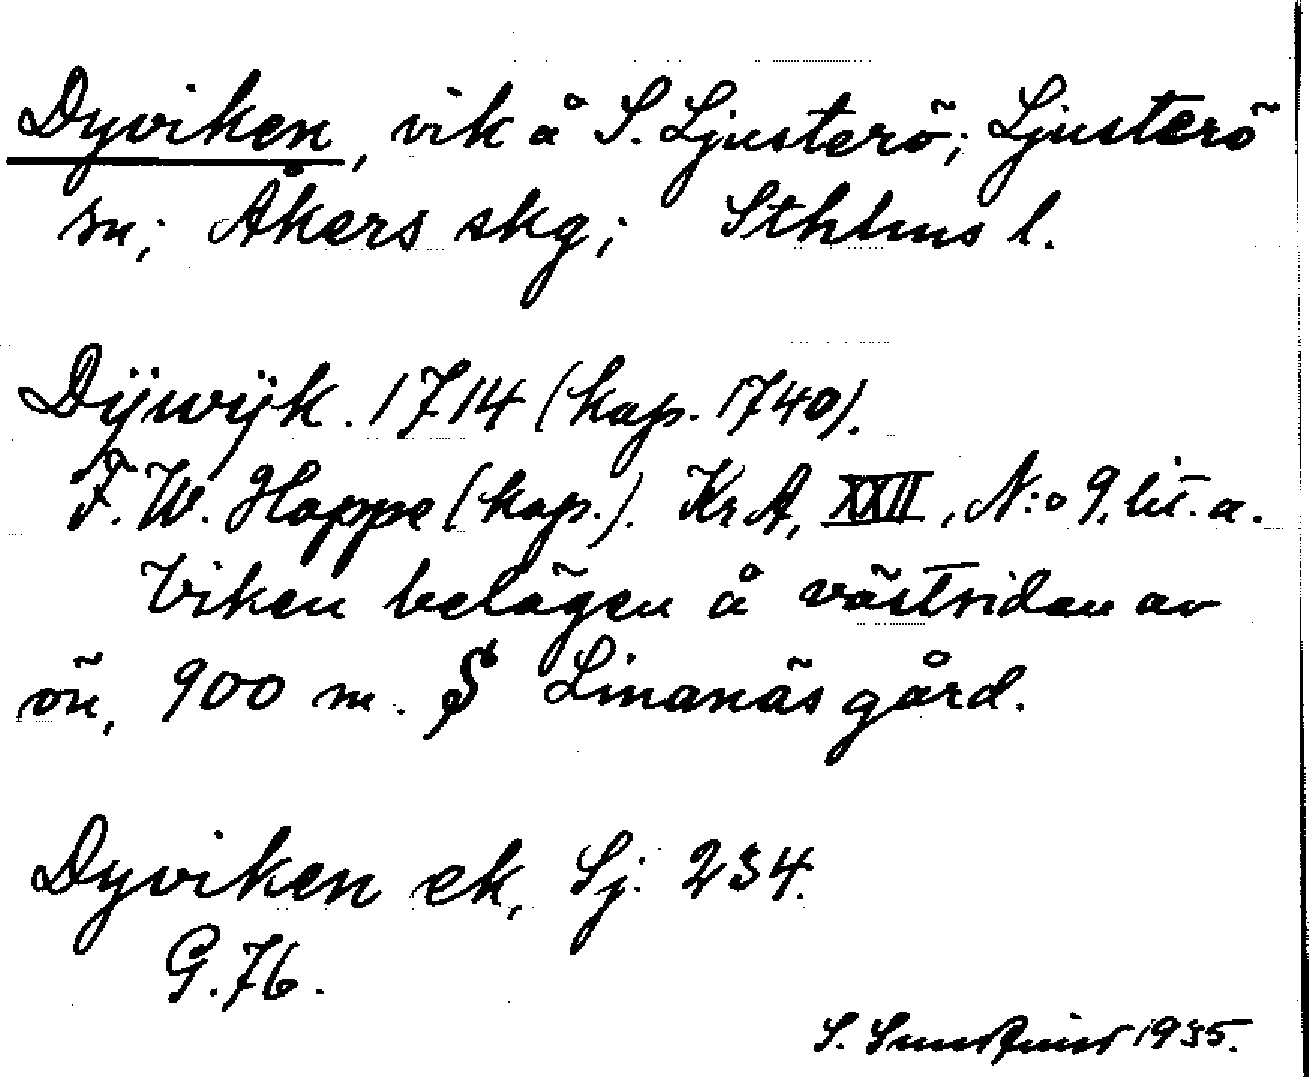 Dyviken, vik å S. Ljusterö; Ljusterö
sn; Åkers skg; Sthlms l.
Dÿwÿk. 1714 (kop. 1740).
F. W. Hoppe (kop.). KrA, XXII, N:o 9, lit. a.
Viken belägen å västsidan av
ön, 900 m. S Linanäs gård.
Dyviken ek, Sj: 234.
G. 76.
S. 1935.